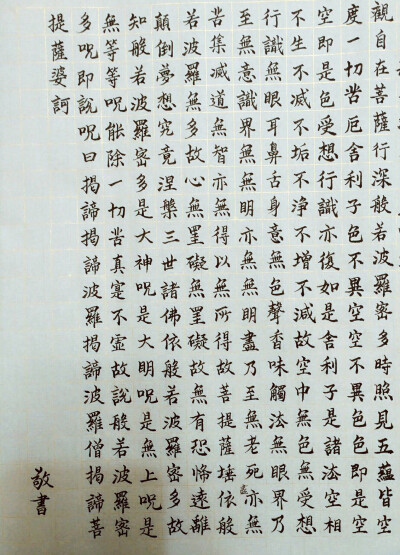 觀自在菩薩行深般若波羅密多時照見五蘊皆空
度一切苦厄舍利子色不異空空不異色色即是空
空即是色受想行識亦復如是舍利子是諸法空相
不生不滅不垢不淨不增不減故空中無色無受想
行識無眼耳鼻舌身意無色聲香味觸法無眼界乃
至無意識界無無明亦無無明盡乃至無老死亦無
苦集滅道無智亦無得以無所得故菩提薩埵依般
若波羅無多故心無罣礙無罣礙故無有恐怖遠離
顛倒夢想究竟涅槃三世諸佛依般若波羅密多故
知般若波羅密多是大神呪是大明呪是無上呪是
無等等呪能除一切苦真寔不虛故說般若波羅密
多呪即說呪曰揭諦揭諦波羅揭諦波羅僧揭諦菩
提薩婆訶
敬書